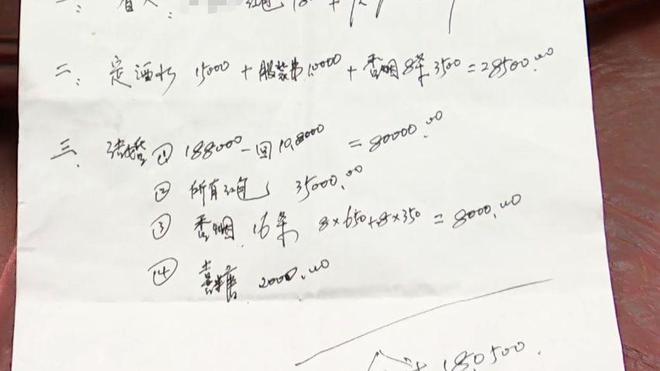 二: 定酒水 15000 + 服装费10000 + 香烟8条3500 = 28500.00
三、 ① 188000 - 回108000 = 80000.00
② 所有红包 35000.00
③ 香烟 16条 8×650+8×350 = 8000.00
④ 喜糖 2000.00
180500.